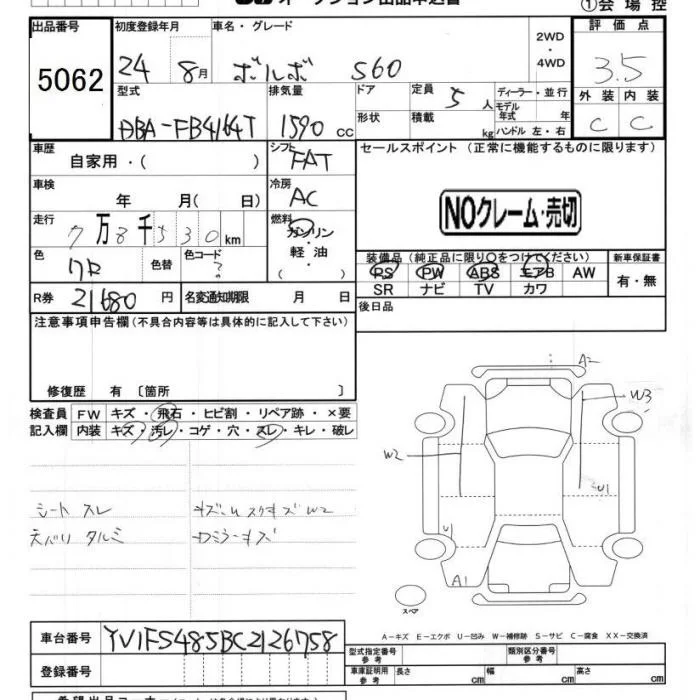 ①会 場 控
出品番号 初度登録年月 車名・グレード 2WD・4WD 評 価 点
5062 24 8月 ボルボ S60 3.5
型式 排気量 ドア 定員 5人 ディーラー・並行 外 装 内 装
DBA-FB4164T 1590 cc 形状 積載 kg モデル年式 年 ハンドル 左・右 C C
車歴 自家用・( ) シフト FAT セールスポイント (正常に機能するものに限ります)
車検 年 月( 日) 冷房 AC NOクレーム・売切
走行 7万8千530km 燃料 ガソリン・軽 油・( )
装備品 (純正品に限り○をつけてください) 新車保証書
色 ワR 色替 色コード ?
PS PW ABS エアB AW 有・無
SR ナビ TV カワ
R券 21680 円 名変通知期限 月 日 後日品
注意事項申告欄 (不具合内容等は具体的に記入して下さい)
修復歴 有 〔箇所 〕
検査員 FW キズ・飛石・ヒビ割・リペア跡・×要
記入欄 内装 キズ・汚レ・コゲ・穴・スレ・キレ・破レ
A2
W3
W2
U1
シート スレ
U1
天バリ タルミ
A1
スペア
A-キズ E-エクボ U-凹み W-補修跡 S-サビ C-腐食 XX-交換済
車台番号 YV1FS485BC2126758 型式指定番号 参 考 類別区分番号 参 考
登録番号 車庫証明用 参 考 長さ cm 幅 cm 高さ cm